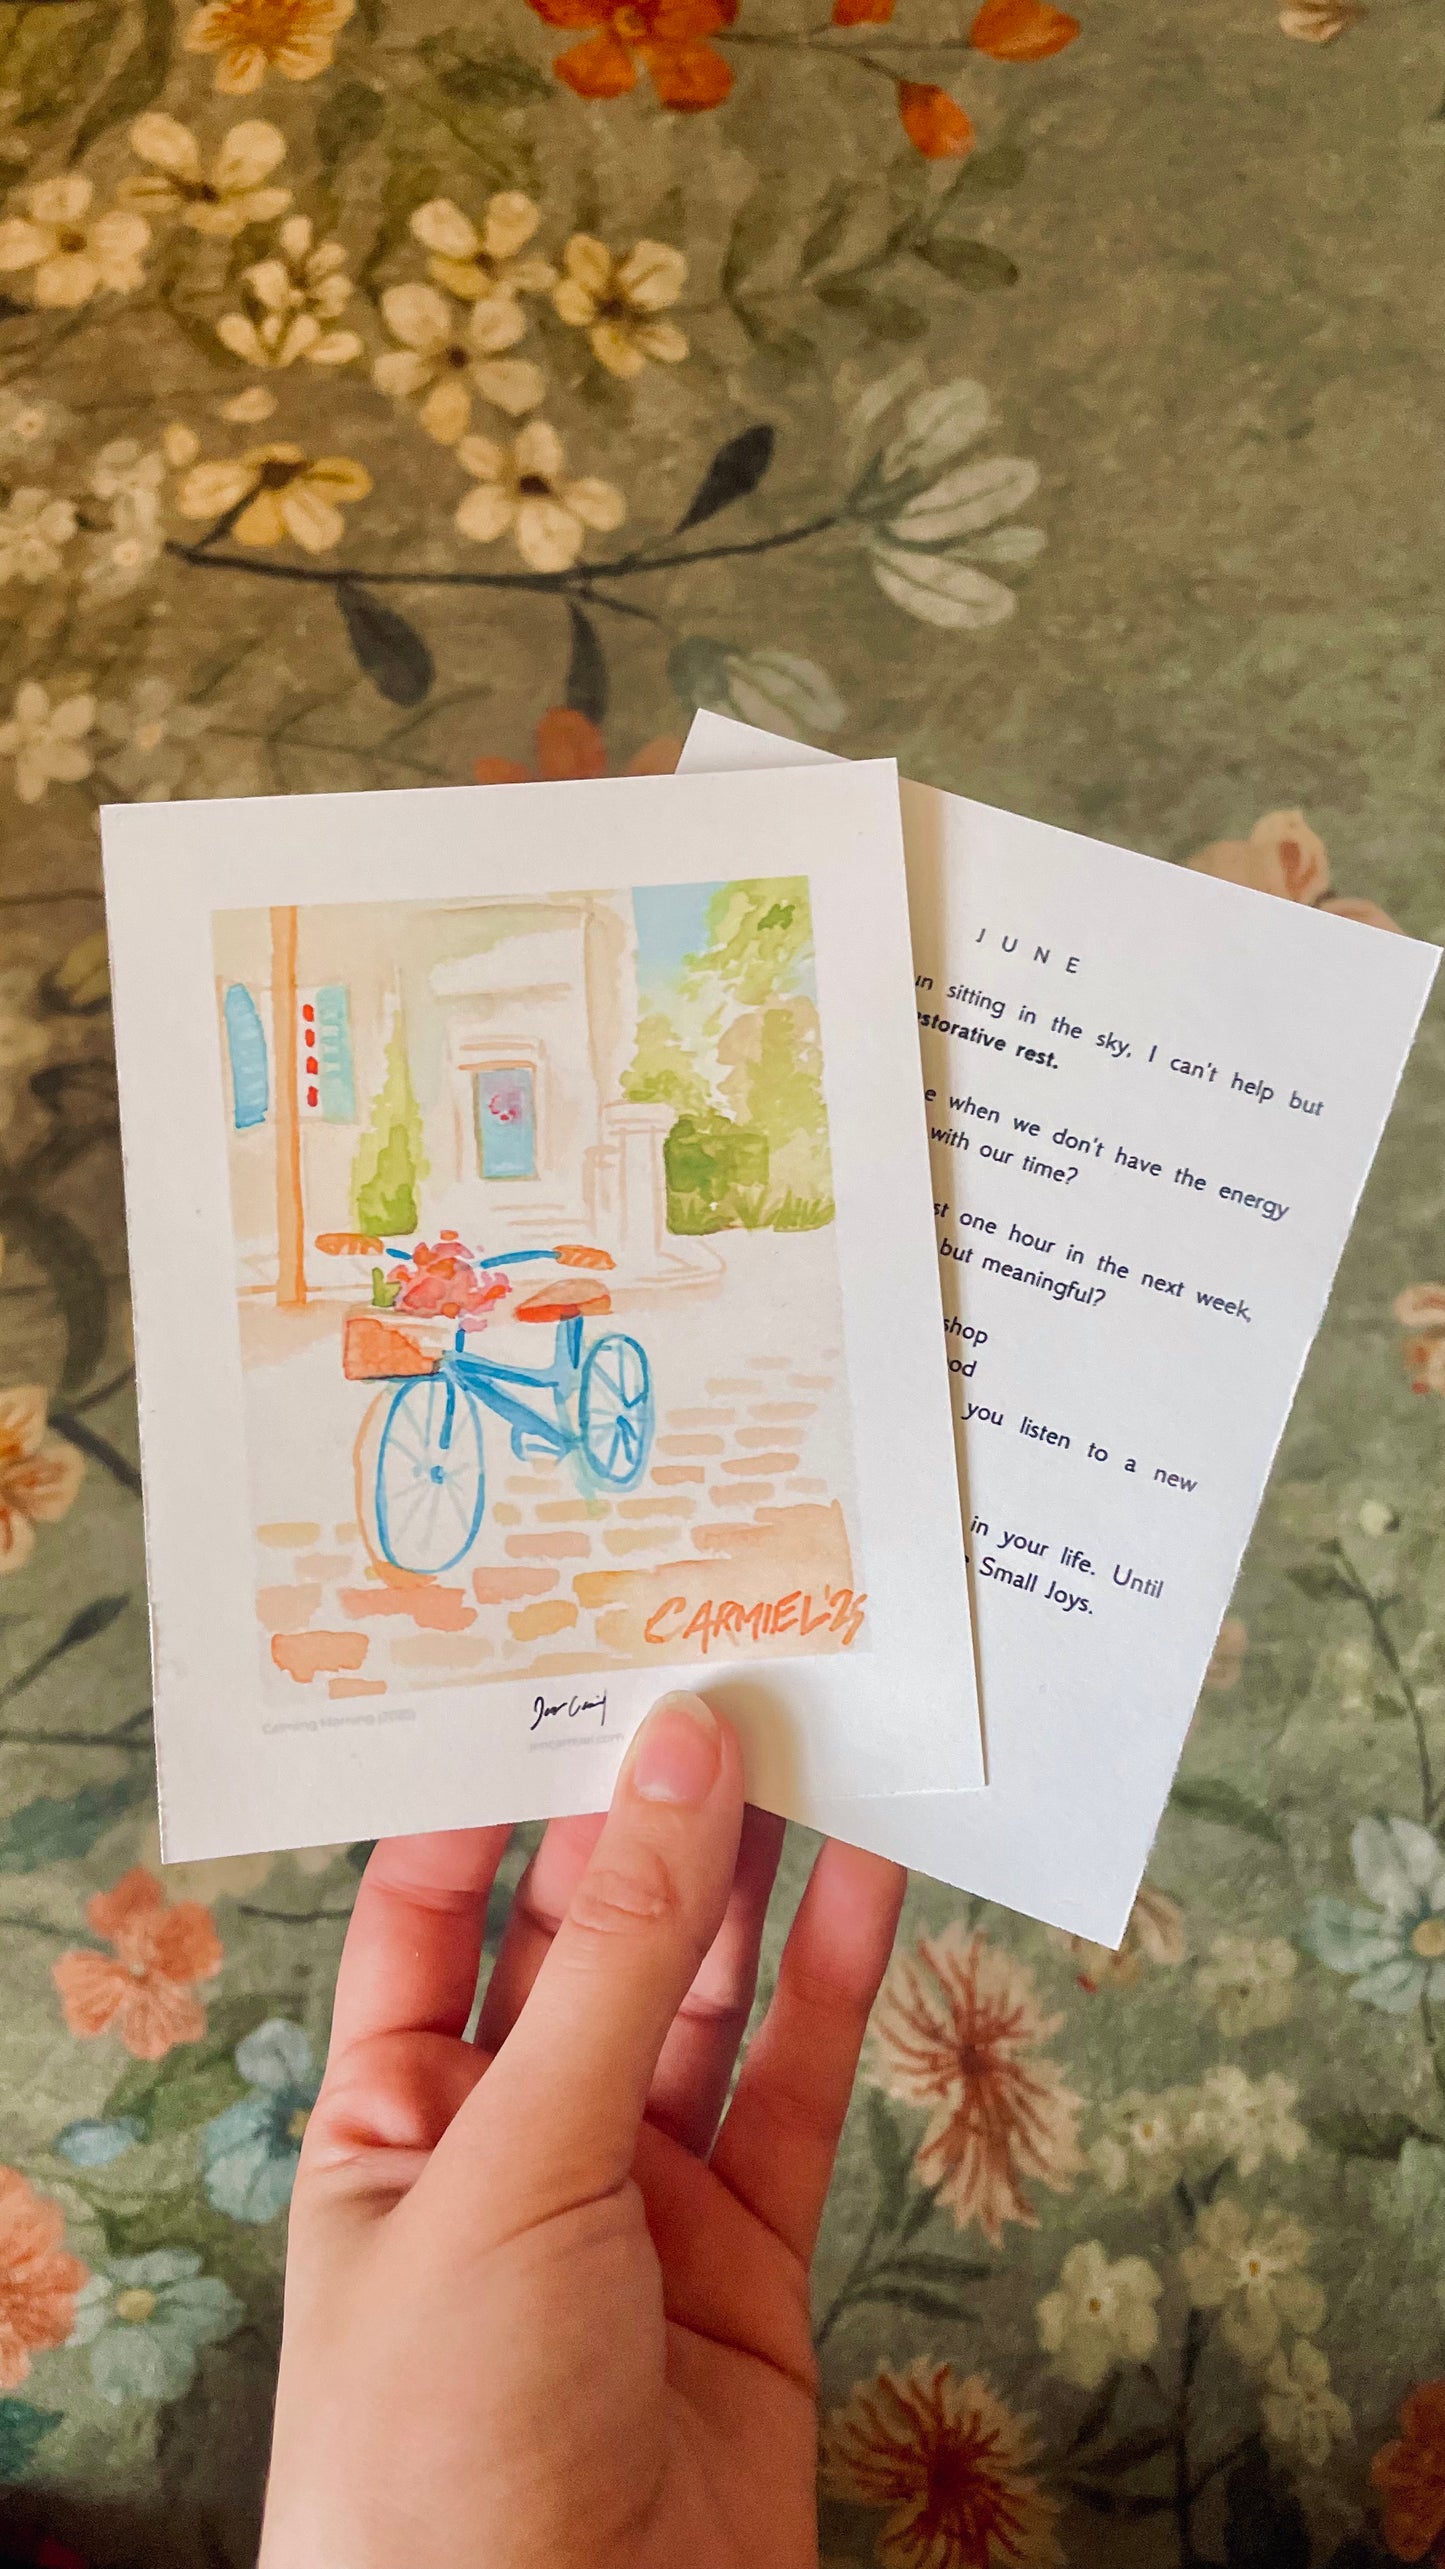 CARMIEL '25
Calming Morning (2025)
jencarmiel.com
JUNE
sitting in the sky, I can't help but
restorative rest.
when we don't have the energy
with our time?
one hour in the next week,
but meaningful?
shop
you listen to a new
in your life. Until
Small Joys.